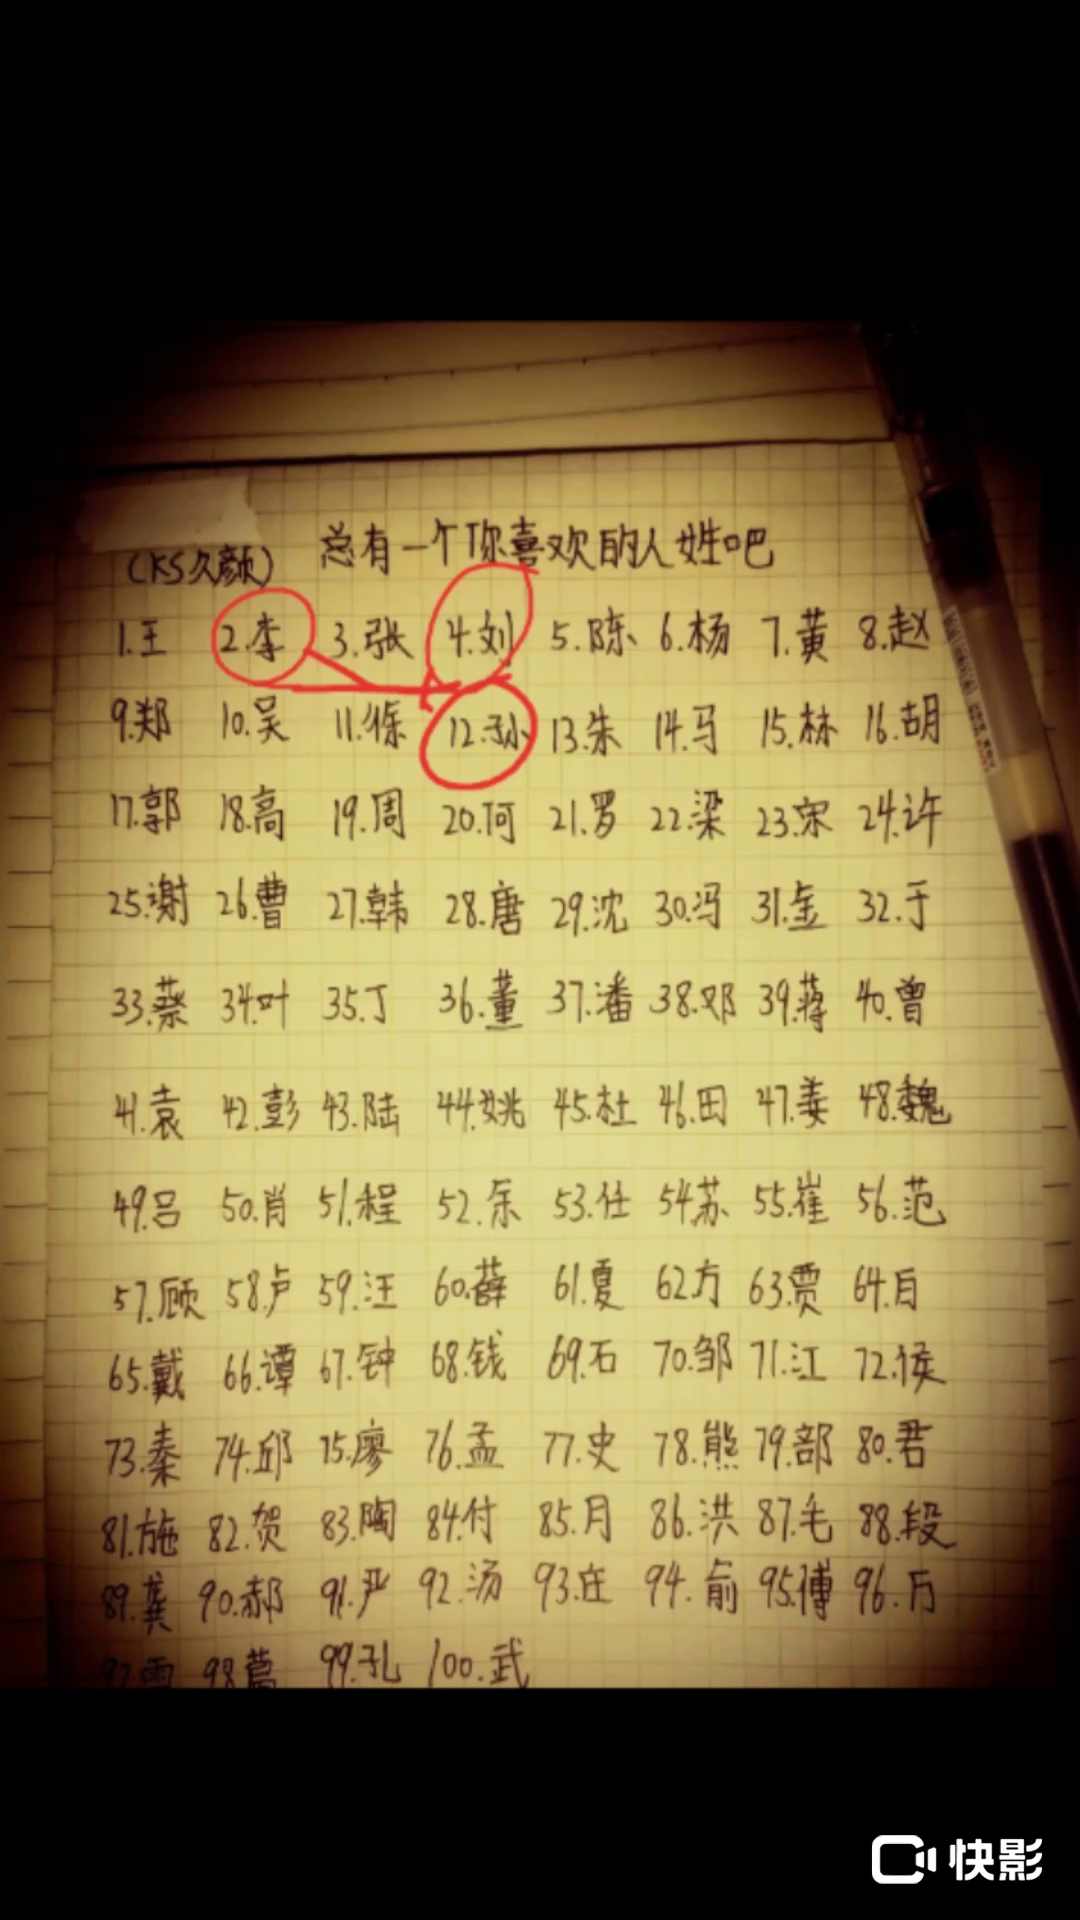 总有一个你喜欢的人姓吧
(KS久颜)
1.王 2.李 3.张 4.刘 5.陈 6.杨 7.黄 8.赵
9.郑 10.吴 11.徐 12.孙 13.朱 14.马 15.林 16.胡
17.郭 18.高 19.周 20.何 21.罗 22.梁 23.宋 24.许
25.谢 26.曹 27.韩 28.唐 29.沈 30.冯 31.金 32.于
33.蔡 34.叶 35.丁 36.董 37.潘 38.邓 39.蒋 40.曾
41.袁 42.彭 43.陆 44.姚 45.杜 46.田 47.姜 48.魏
49.吕 50.肖 51.程 52.余 53.任 54.苏 55.崔 56.范
57.顾 58.卢 59.汪 60.薛 61.夏 62.方 63.贾 64.白
65.戴 66.谭 67.钟 68.钱 69.石 70.邹 71.江 72.侯
73.秦 74.邱 75.廖 76.孟 77.史 78.熊 79.部 80.君
81.施 82.贺 83.陶 84.付 85.月 86.洪 87.毛 88.段
89.龚 90.郝 91.严 92.汤 93.庄 94.俞 95.傅 96.万
97.雷 98.葛 99.孔 100.武
快影